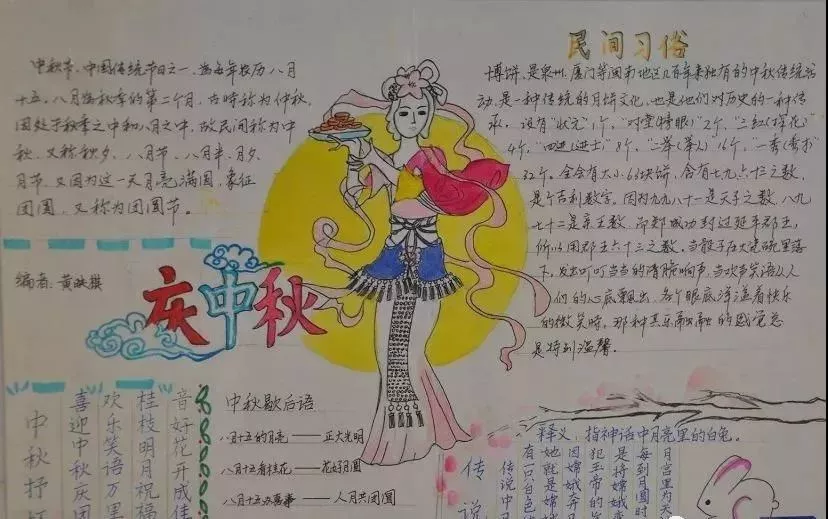 中秋节,中国传统节日之一,为每年农历八月
十五,八月为秋季的第二个月,古时称为仲秋,
因处于秋季之中和八月之中,故民间称为中
秋,又称秋夕、八月节、八月半、月夕、
月节,又因为这一天月亮满圆,象征
团圆,又称为团圆节。
编者:黄映祺
庆中秋
民间习俗
博饼,是泉州、厦门等闽南地区几百年来独有的中秋传统活
动,是一种传统的月饼文化,也是他们对历史的一种传
承。设有“状元”1个,“对堂(榜眼)”2个,“三红(探花)”
4个,“四进(进士)”8个,二举(举人)16个,一秀(秀才)
32个。全会有大小63块饼,含有七九六十三之数,
是个吉利数字。因为九九八十一是天子之数,八九
七十二是亲王数,而郑成功封过延平郡王,
所以用郡王六十三之数。当骰子在大瓷碗里落
下,发出叮叮当当的清脆响声,当欢声笑语从人
们的心底飘出,各个眼底洋溢着快乐
的微笑时,那种其乐融融的感觉总
是特别温馨。
音好花开成佳
桂枝明月祝福
欢乐笑语万里
喜迎中秋庆团
中秋抒
中秋歇后语
八月十五的月亮——正大光明
八月十五看桂花——花好月圆
八月十五办喜事——人月共团圆
传说
释义:指神话中月亮里的白兔。
月宫里为天
每到月圆时
是将嫦娥
犯玉帝的
因嫦娥奔
她就是嫦
有一只白色
传说中月